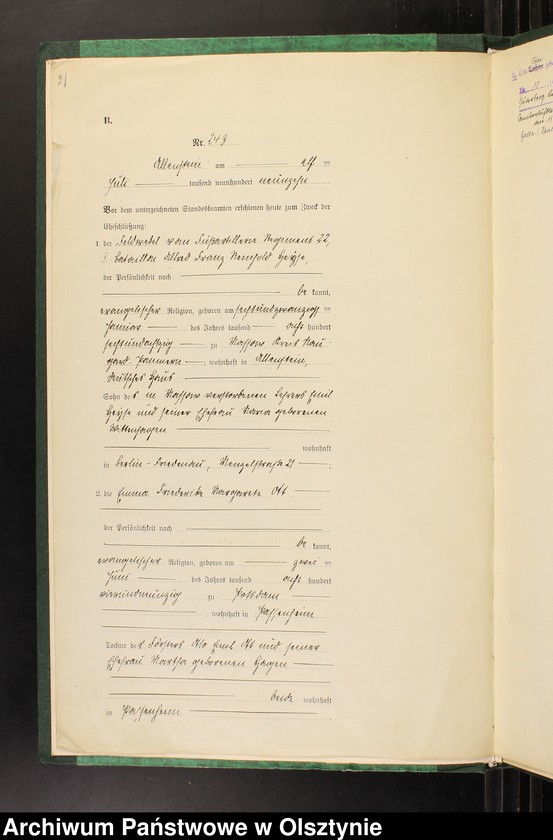 21
B.
Nr. 243
Allenstein am elf ten
Juli tausend neunhundert neunzehn
Vor dem unterzeichneten Standesbeamten erschienen heute zum Zweck der
Eheschließung:
1. der Feldwebel vom Fußartillerie Regiment 22,
I. Bataillon Alfred Franz Reinhold Heyse,
der Persönlichkeit nach
be kannt,
evangelischer Religion, geboren am sechsundzwanzigsten
Januar des Jahres tausend acht hundert
sechsundachtzig zu Massow Kreis Nau-
gard Pommern, wohnhaft in Allenstein,
Deutsches Haus
Sohn des in Massow verstorbenen Lehrers Emil
Heyse und seiner Ehefrau Maria geborenen
wohnhaft
in Berlin-Friedenau, Menzelstraße 21;
2. die Emma Friederike Margarete Ott
der Persönlichkeit nach
be kannt,
evangelischer Religion, geboren am zwei ten
Juni des Jahres tausend acht hundert
vierundneunzig zu Potsdam
, wohnhaft in Passenheim
Tochter des Försters Otto Emil Ott und seiner
Ehefrau Martha geborenen Hagen
beide wohnhaft
in Passenheim
Archiwum Państwowe w Olsztynie